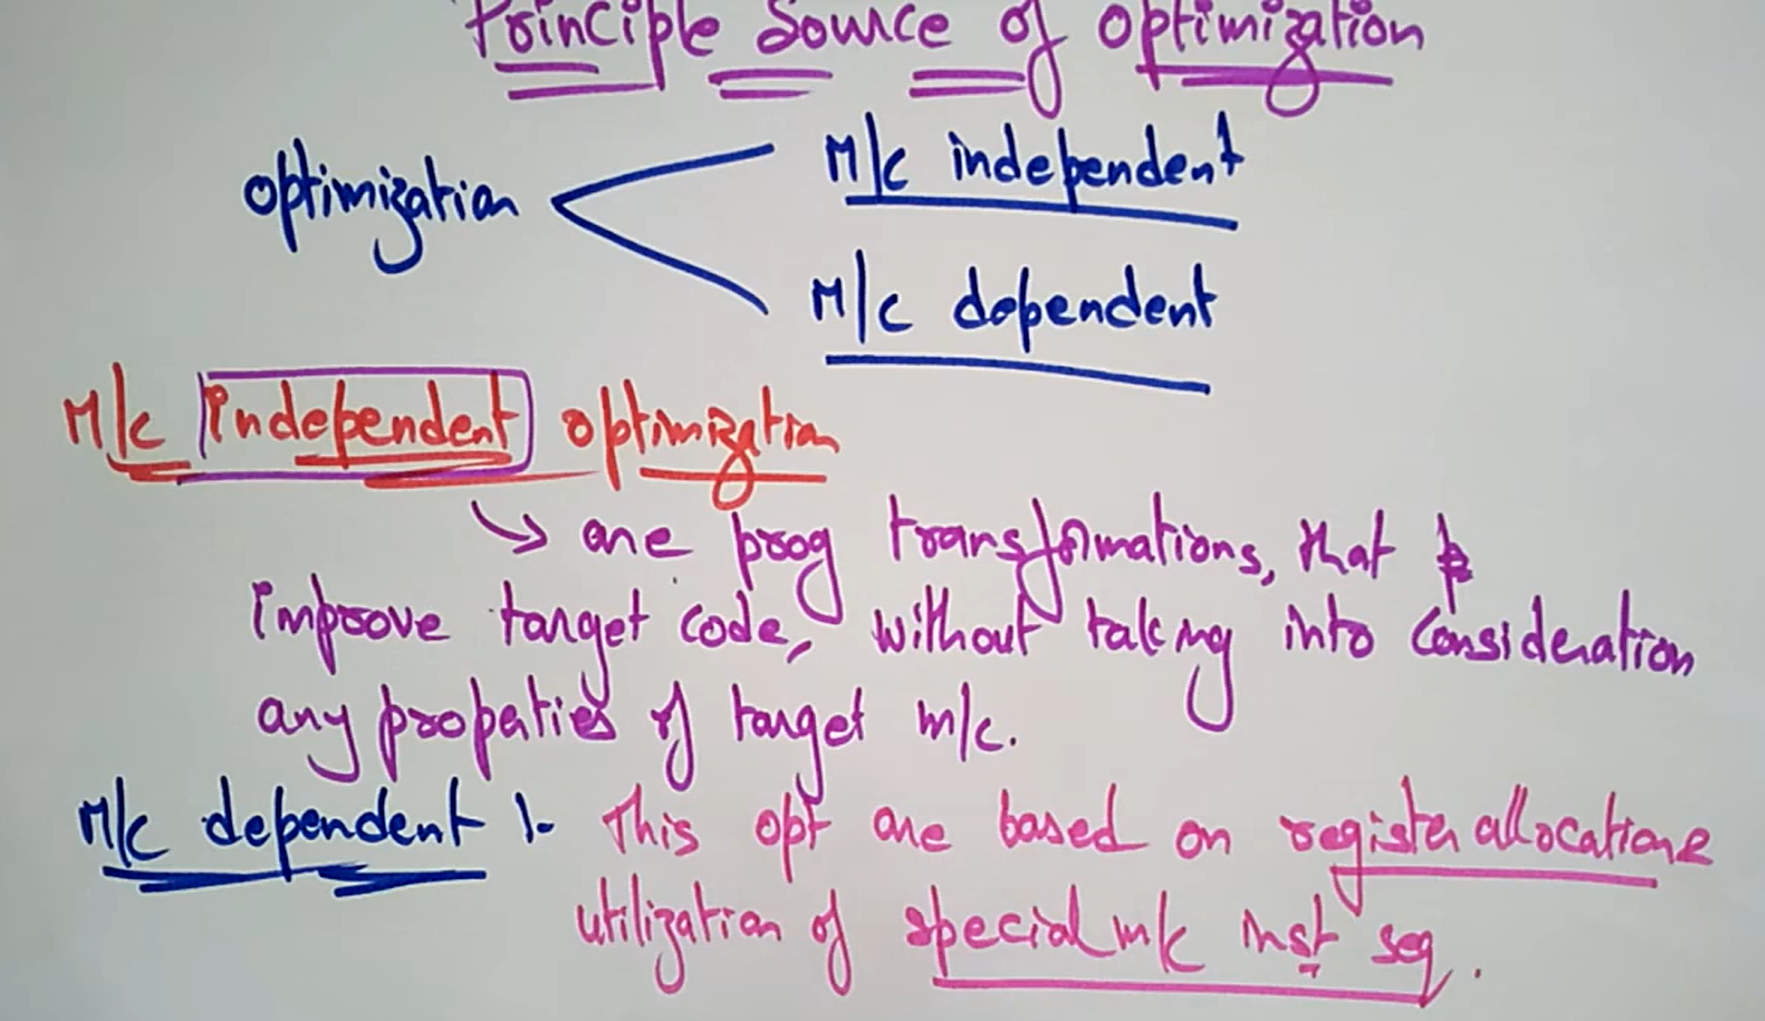 Principle Source of optimization
optimization
M/c independent
M/c dependent
M/c independent optimization
→ are prog transformations, that
improve target code, without taking into consideration
any propeties of target m/c.
M/c dependent :- This opt are based on register allocation &
utilization of special m/c inst seq.